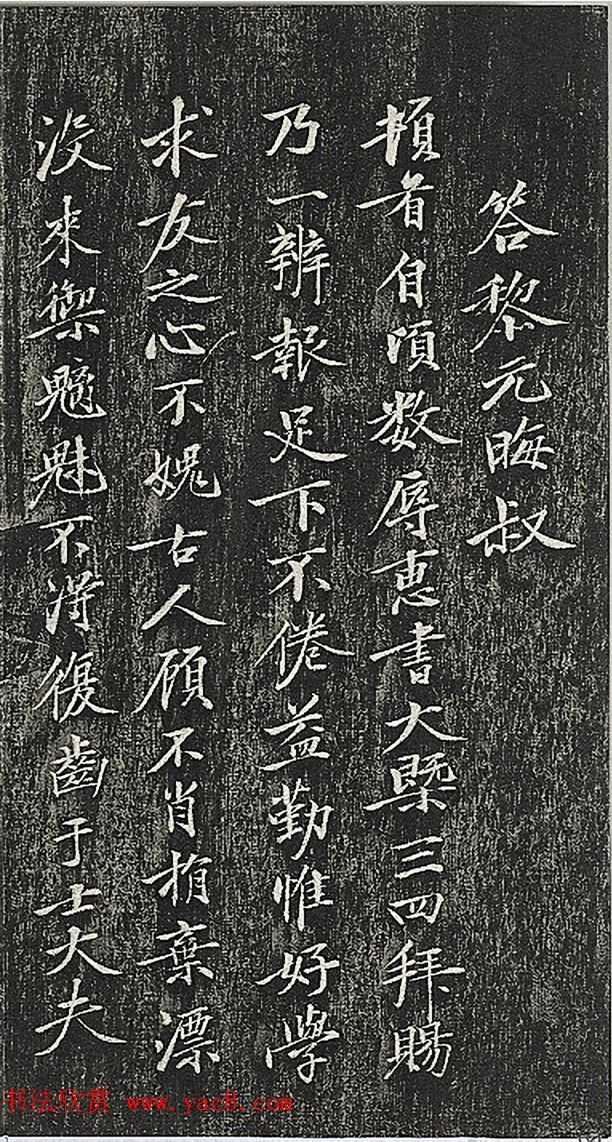 答黎元晦叔
頓首自頃数辱惠書大槩三四拜賜
乃一辨報足下不倦益勤惟好學
求友之心不媿古人顧不肖捐棄漂
没來禦魑魅不得復齒于士大夫
书法欣赏 www.yac8.com